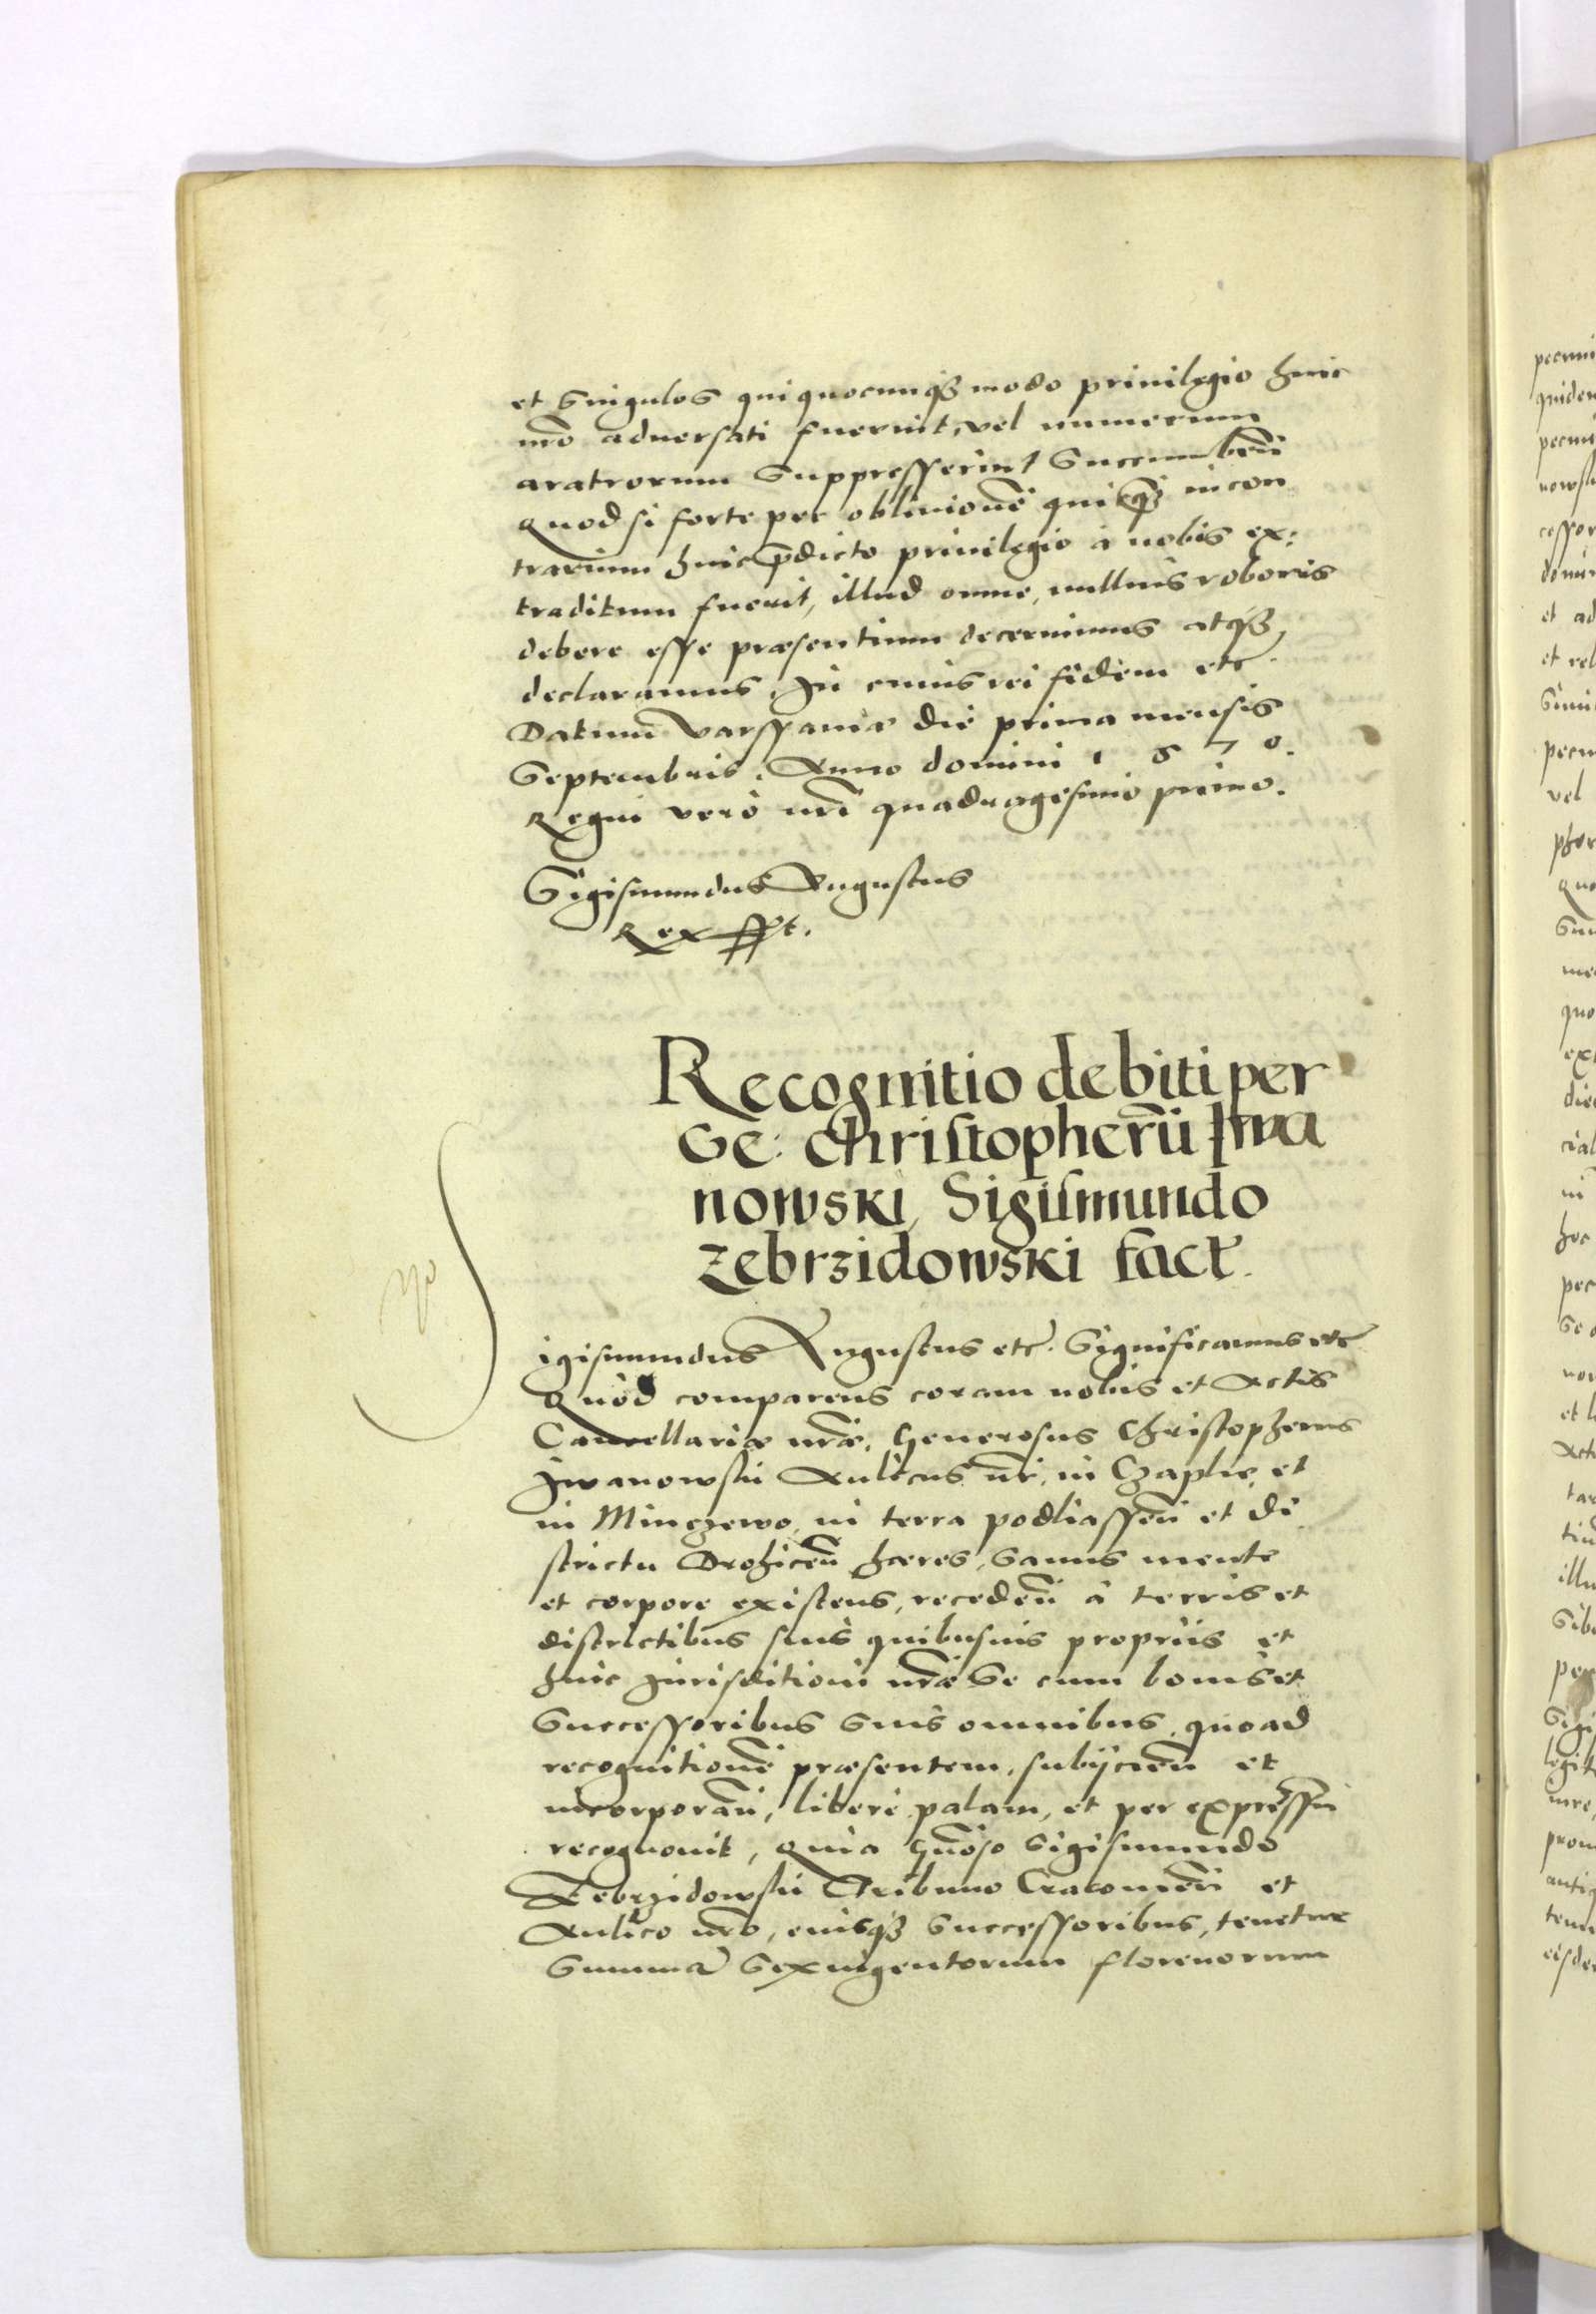 et singulos qui quocunq3 modo privilegio huic
nr̃o adversati fuerint, vel numerum
aratrorum suppresserint succumbeñ
Quod si forte per oblivionẽ quicq̃3 in con
trarium huic p̃dicto privilegio à nobis ex:
traditum fuerit, illud omne, nullius roboris
debere esse præsentium decernimus atq3
declaramus. In cuius rei fidem etc̃.
Datum Varssaviæ die prima mensis
Septembris. Anno domini 1 5 7 0.
Regni verò nr̃i quadragesimo primo.
Sigismundus Augustus
Rex sspt.
Recognitio debiti per
Ge: Christopherũ Iwa
nowski, Sigismundo
Zebrzidowski fact̃.
Sigismundus Augustus etc̃. Significamus etc̃
Quòd comparens coram nobis et Actis
Cancellariæ nr̃æ, Generosus Christopherus
Iwanowski Aulicus nr̃, in Czaplie, et
in Minczewo, in terra podliasseñ et di
strictu Drohiceñ hæres, sanus mente
et corpore existens, recedeñ à terris et
districtibus suis quibusuis proprijs et
huic Jurisditioni nr̃æ se cum bonis et
successoribus suis omnibus, quoad
recognitionẽ præsentem, subijcieñ et
incorporañ, liberè palam, et per expressũ
recognovit, Quia Gñoso Sigismundo
Zebrzidowski Tribuno Cracovieñ et
Aulico nr̃o, eiusq3 successoribus, tenetur
Summã Sexingentorum florenorum